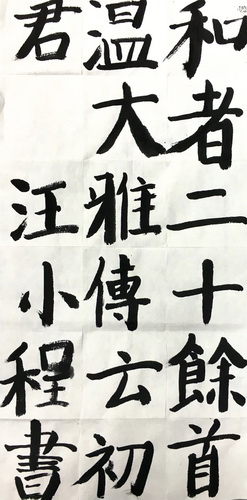 和者二十餘首
温大雅傳云初
君汪小程書